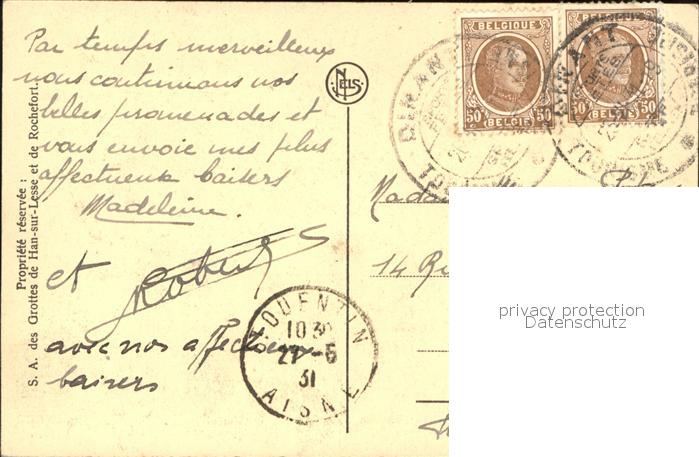 Par temps merveilleux
nous continuons nos
belles promenades et
vous envoie mes plus
affectueux baisers
Madeleine.
et Robert
avec nos affectueux
baisers
Propriété réservée :
S. A. des Grottes de Han-sur-Lesse et de Rochefort.
NELS
BELGIQUE
50c 50c
BELGIË
BELGIQUE
50c 50c
BELGIË
DINANT
TOURISME
DINANT
TOURISME
QUENTIN
1030
27-6
31
AISNE
14 Ru
privacy protection
Datenschutz